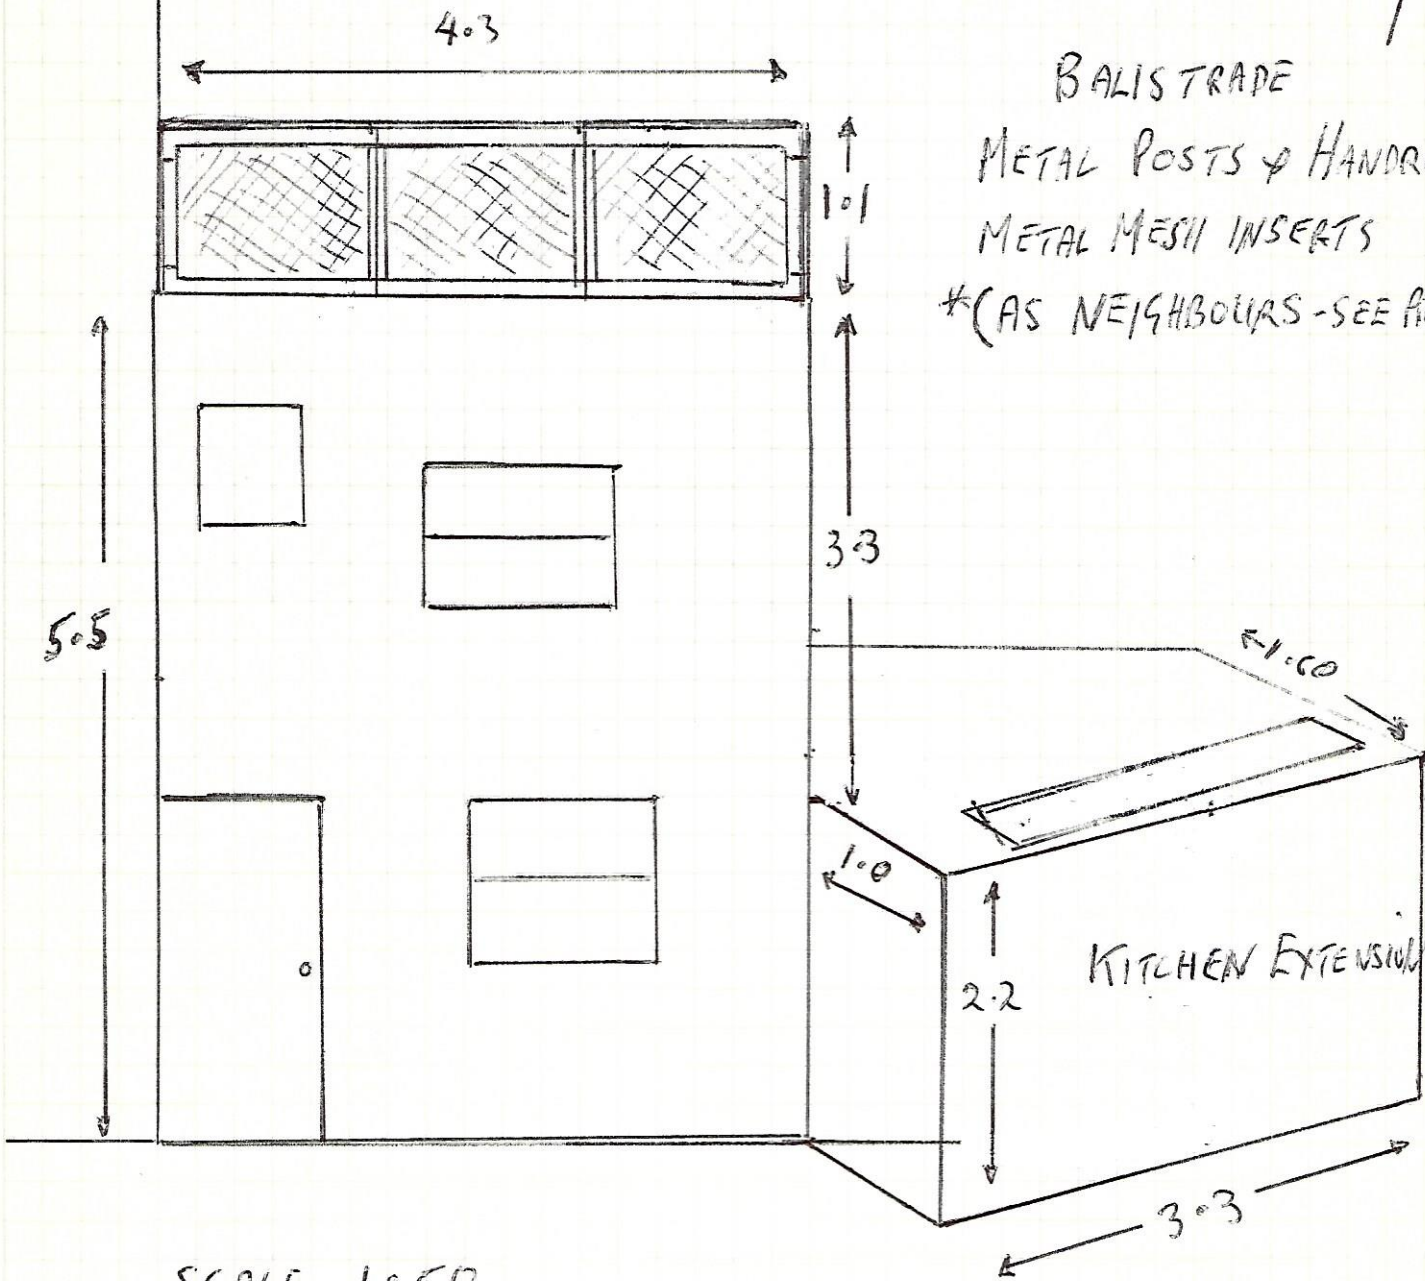 4.3
BALISTRADE
METAL POSTS & HANDR
METAL MESH INSERTS
*(AS NEIGHBOURS - SEE
1.1
3.3
5.5
1.60
1.0
2.2
KITCHEN EXTENSION
3.3
SCALE 1:50